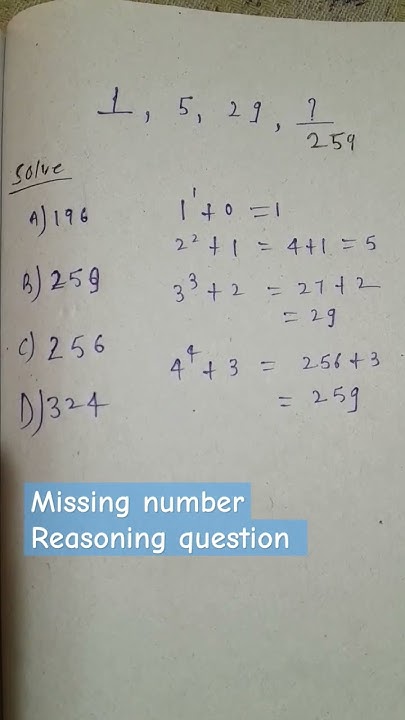 1, 5, 29, ?
259
Solve
A) 196
B) 259
C) 256
D) 324
1¹ + 0 = 1
2² + 1 = 4+1 = 5
3³ + 2 = 27 + 2
= 29
4⁴ + 3 = 256 + 3
= 259
Missing number
Reasoning question